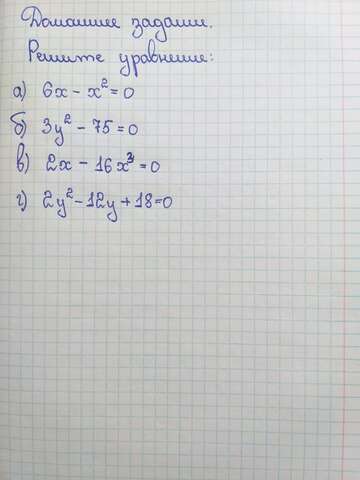 Домашнее задание.
Решите уравнение:
а) 6x - x² = 0
б) 3y² - 75 = 0
в) 2x - 16x³ = 0
г) 2y² - 12y + 18 = 0